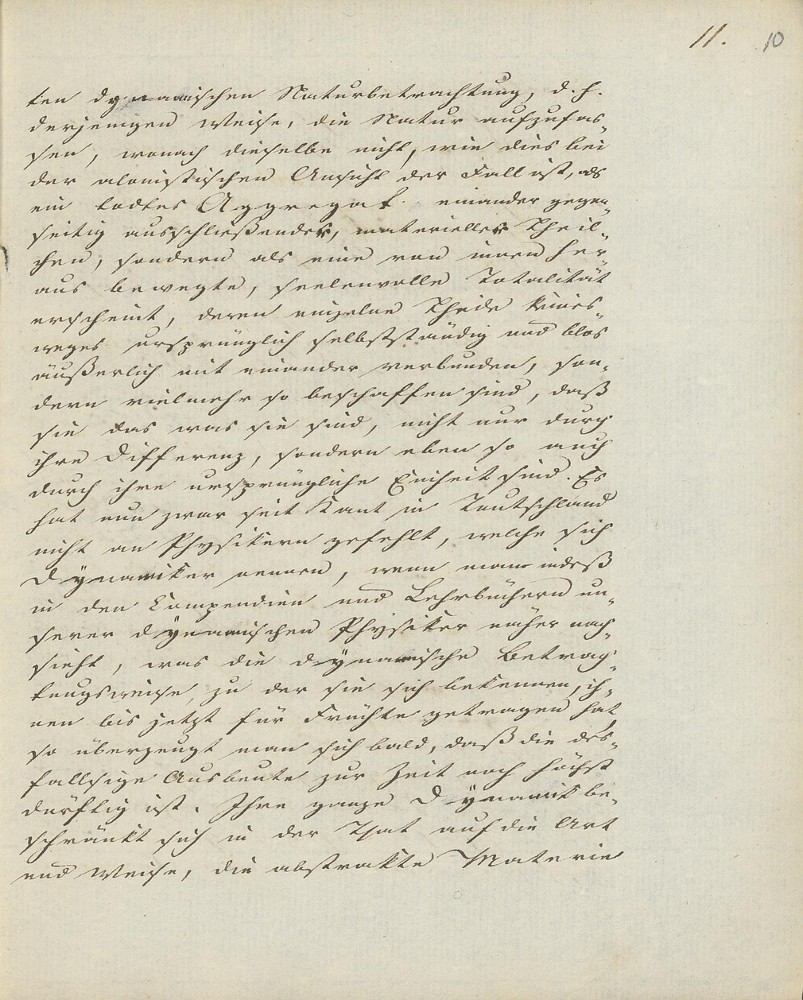 11. 10
ten dynamischen Naturbetrachtung, d. h.
derjenigen Weise, die Natur aufzufas-
sen, wonach dieselbe nicht, wie dies bei
der atomistischen Ansicht der Fall ist, als
ein todtes Aggregat einander gegen-
seitig ausschließender, materieller Theil-
chen, sondern als eine von innen her-
aus bewegte, seelenvolle Totalität
erscheint, deren einzelne Theile keines-
weges ursprünglich selbstständig und blos
äußerlich mit einander verbunden, son-
dern vielmehr so beschaffen sind, daß
sie das was sie sind, nicht nur durch
ihre Differenz, sondern eben so auch
durch ihre ursprüngliche Einheit sind. Es
hat nun zwar seit Kant in Teutschland
nicht an Physikern gefehlt, welche sich
Dynamiker nennen, wenn man indeß
in den Compendien und Lehrbüchern un-
serer dynamischen Physiker näher nach-
sieht, was die dynamische Betrach-
tungsweise, zu der sie sich bekennen, ih-
nen bis jetzt für Früchte getragen hat
so überzeugt man sich bald, daß die des-
fallsige Ausbeute zur Zeit noch höchst
dürftig ist. Ihre ganze Dynamik be-
schränkt sich in der That auf die Art
und Weise, die abstrakte Materie